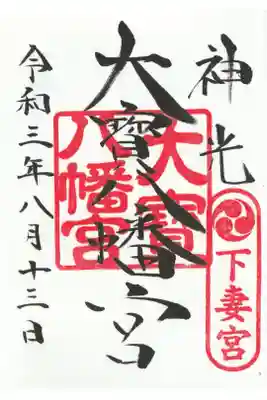 神光
下妻宮
大寶八幡宮
大寶
八幡宮
令和三年八月十三日